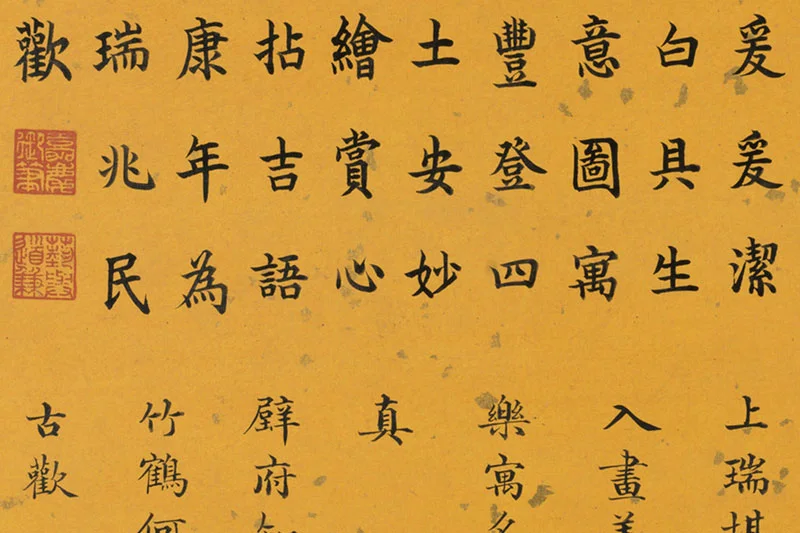 爰爰潔
白具生
意圖寓
豐登四
土安妙
繪賞心
拈吉語
康年為
瑞兆民
歡
嘉慶御筆
上瑞
入畫
樂寓
真
壁府
竹鶴何
古歡